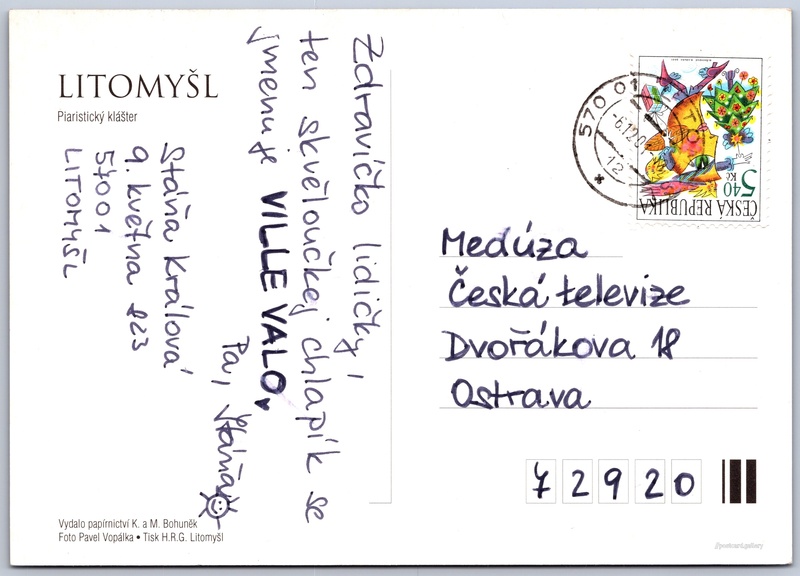 LITOMYŠL
Piaristický klášter
Zdravíčko lidičky,
ten skvěloučkej chlapík se
jmenuje VILLE VALO.
Pa, Stáňa
Stáňa Králová
9. května 823
57001
LITOMYŠL
Vydalo papírnictví K. a M. Bohuněk
Foto Pavel Vopálka • Tisk H.R.G. Litomyšl
570 01
-6.12.0
12
5,40
Kč
ČESKÁ REPUBLIKA
Medúza
Česká televize
Dvořákova 18
Ostrava
72920
//postcard.gallery